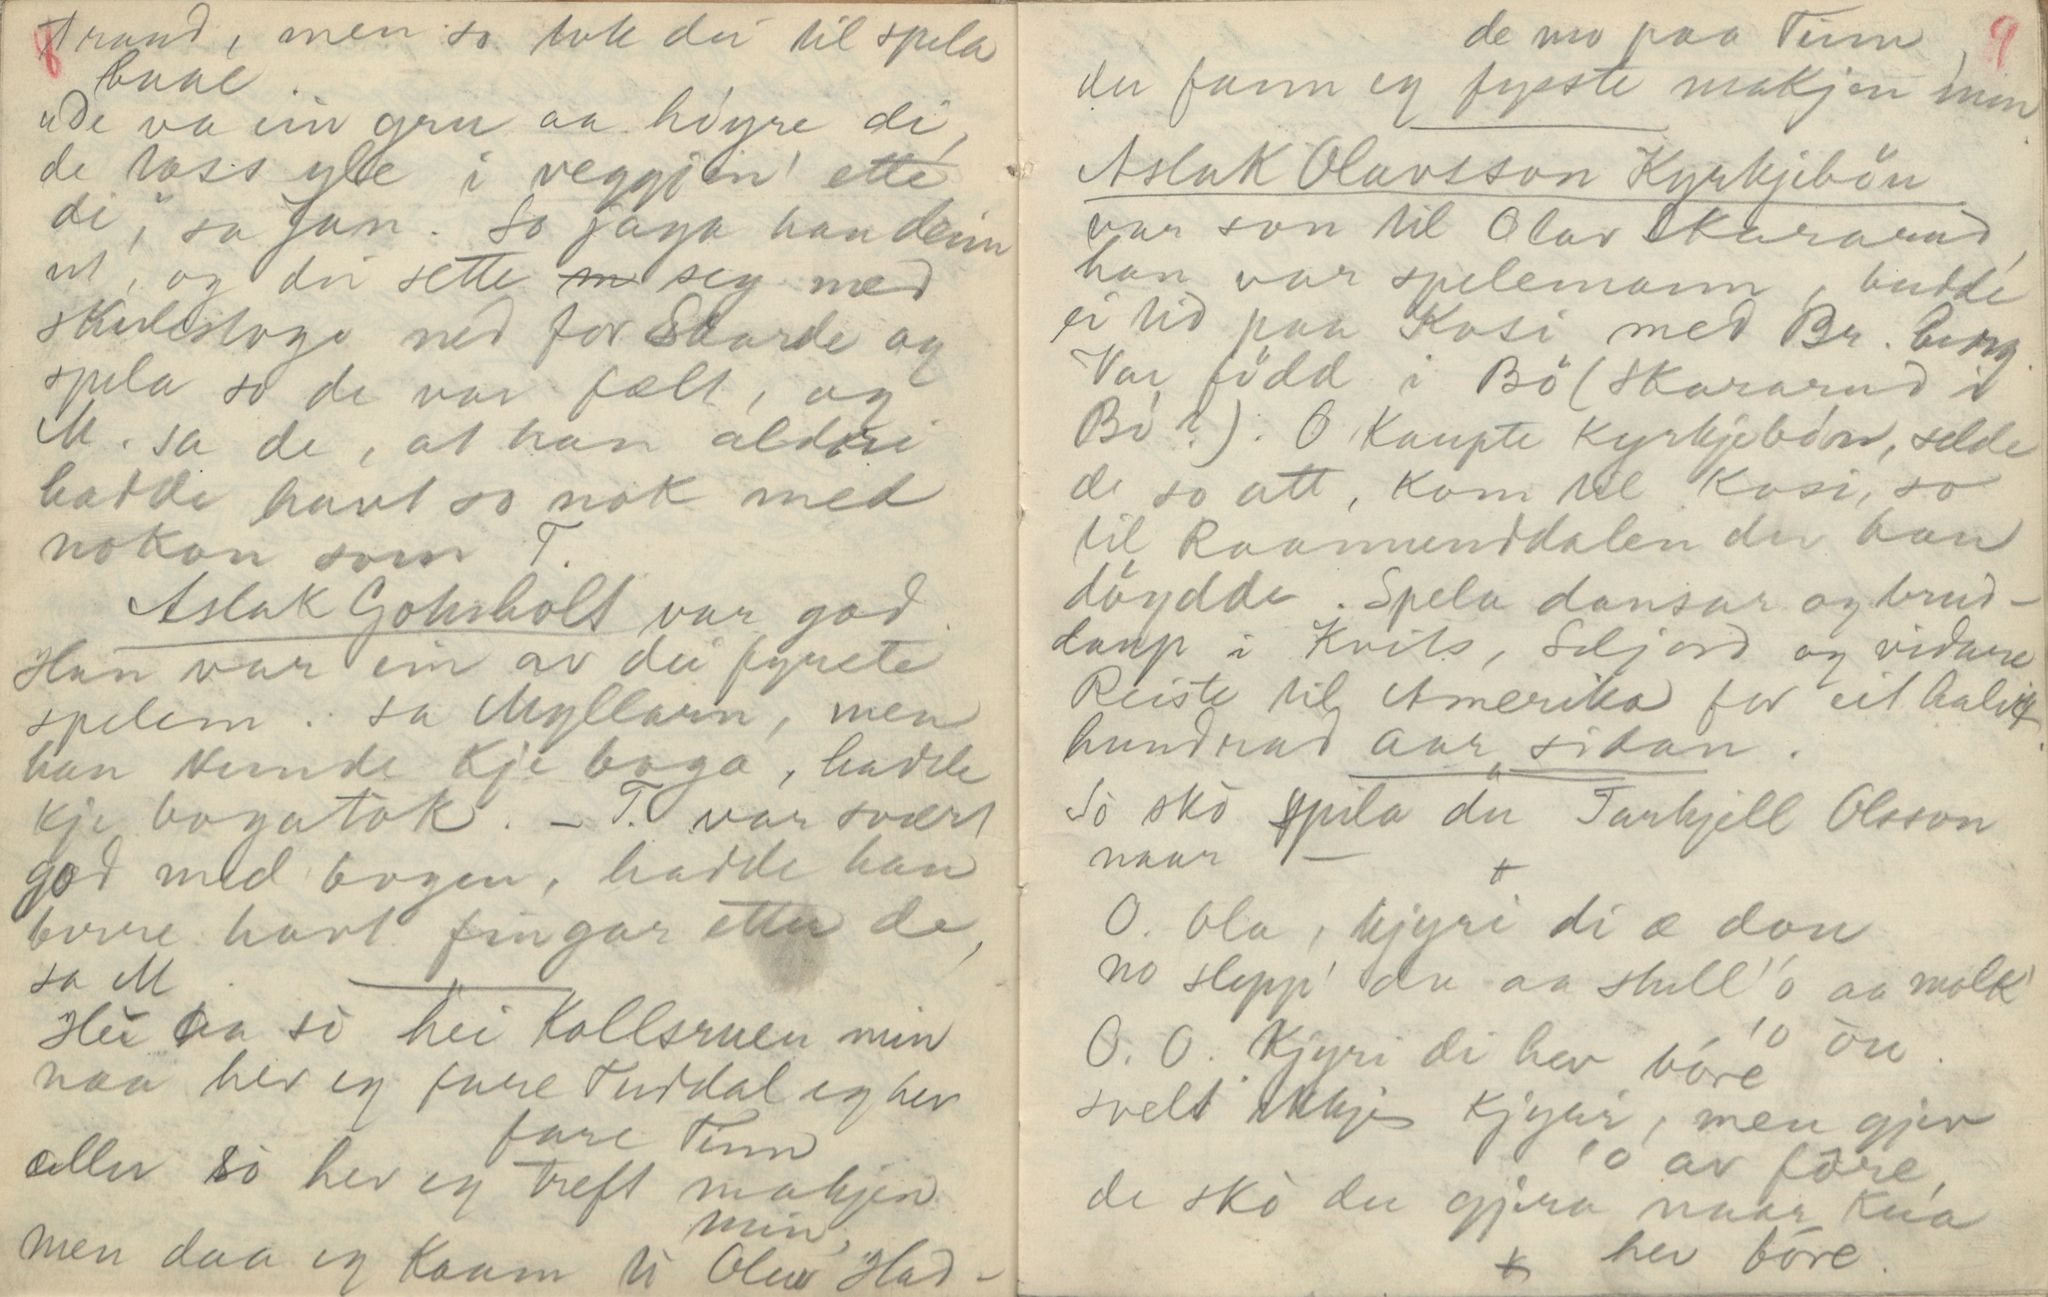 8
strand, men so tok dei til spela
baae.
"De va ein gru aa höyre di,
de lass yle i veggjin' ette
di", sa Jan. So jaga han deim
ut, og dei sette seg med
skulestoga ned for Skarde og
spela so de var fælt, og
M. sa de, at han aldri
hadde havt so nok med
nokon som T.
Aslak Gohsholt var god.
Han var ein av dei fyrste
spelem. sa Myllarn, men
han kunde kje boga, hadde
kje bogatak. – T. var svært
god med bogen, hadde han
berre havt fingar etter de,
sa M.
Hei aa sò hei Kollsruen min
naa hev eg fare Tuddal eg hev
fare Tinn
eller sò hev eg treft makjen
min,
men daa eg kaam ti Olav Had-
9
de mo paa Tinn,
der fann eg fysste makjen min.
Aslak Olavsson Kyrkjebön
var son til Olav Skararud,
han var spelemann, budde
ei tid paa Kasi med Br. berg.
Var född i Bö (Skararud i
Bö?). O. kaupte Kyrkjebön, selde
de so att, kom til Kasi, so
til Raamunddalen der han
döydde. Spela dansar og brud-
laup i Kvits, Seljord og vidare
Reiste til Amerika for eit halvt
hundrad aar sidan.
Sò skò spila du Tarkjell Olsson
naar –
O. Ola, kjyri di æ don
no slepp' du aa stull' ò aa molk'
'ò òn.
O. O. Kjyri di hev bòre
svelt ikkje kjyri, men gjev
'ò av fòre,
de skò du gjera naar kua
hev bòre.